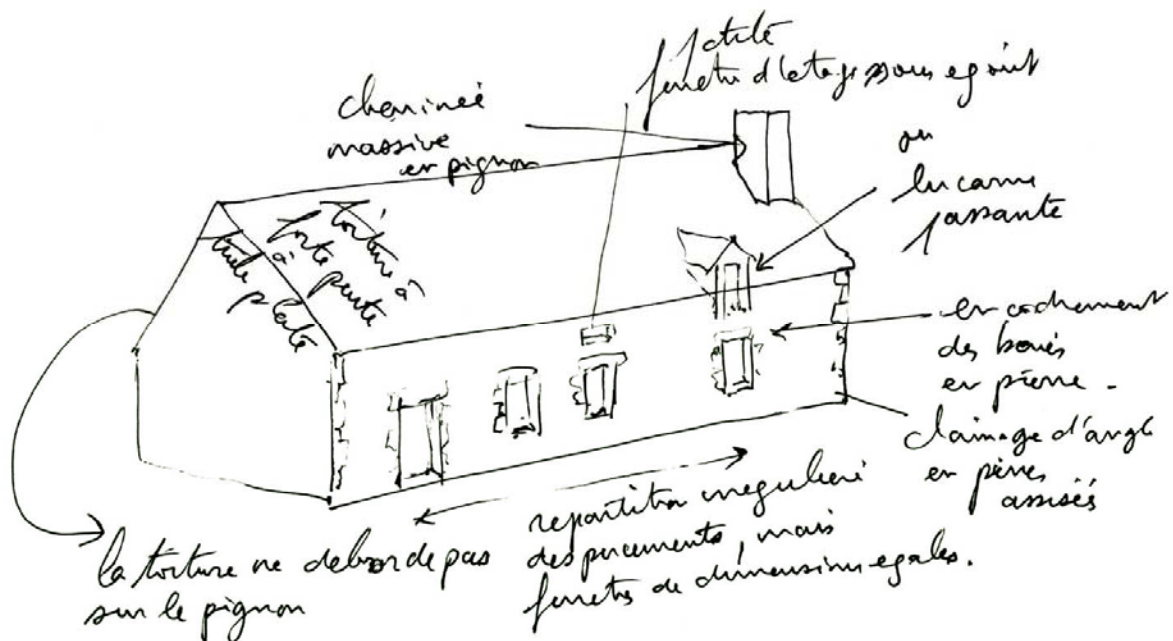 petite
fenetre d'etage sous egout
cheminée
massive
en pignon
ou
lucarne
passante
toiture à
forte pente
à
tuile
plate
encadrement
des baies
en pierre.
chainage d'angle
en pierres
assisés
repartition irreguliere
des percements, mais
fenetres de dimensions egales.
la toiture ne deborde pas
sur le pignon